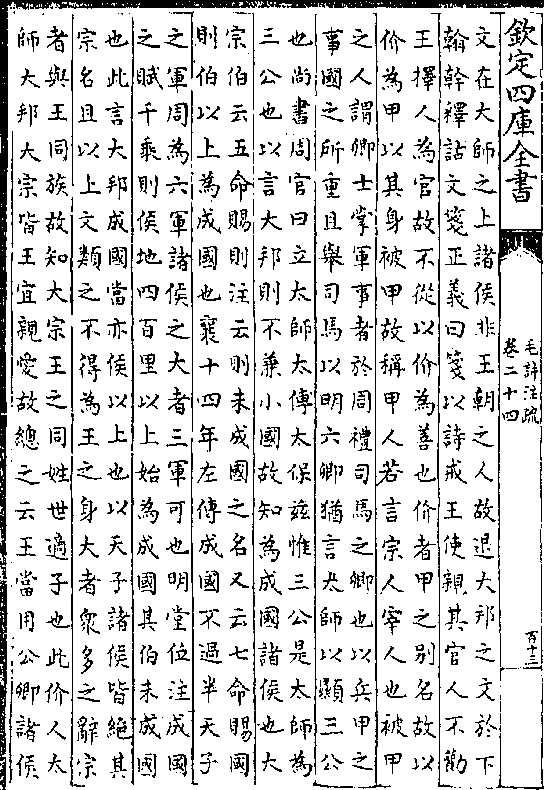 欽定四庫全書
毛詩注疏
卷二十四
百十三
文在大師之上諸侯非王朝之人故退大邦之文於下
翰幹釋詁文箋正義曰箋以詩戒王使親其官人不勸
王擇人為官故不從以价為善也价者甲之別名故以
价為甲以其身被甲故稱甲人若言宗人宰人也被甲
之人謂卿士掌軍事者於周禮司馬之卿也以兵甲之
事國之所重且舉司馬以明六卿猶言太師以顯三公
也尚書周官曰立太師太傅太保茲惟三公是太師為
三公也以言大邦則不兼小國故知為成國諸侯也大
宗伯云五命賜則注云則未成國之名又云七命賜國
則伯以上為成國也襄十四年左傳成國不過半天子
之軍周為六軍諸侯之大者三軍可也明堂位注成國
之賦千乘則侯地四百里以上始為成國其伯未成國
也此言大邦成國當亦侯以上也以天子諸侯皆絕其
宗名且以上文類之不得為王之身大者衆多之辭宗
者與王同族故知大宗王之同姓世適子也此价人太
師大邦大宗皆王宜親愛故總之云王當用公卿諸侯